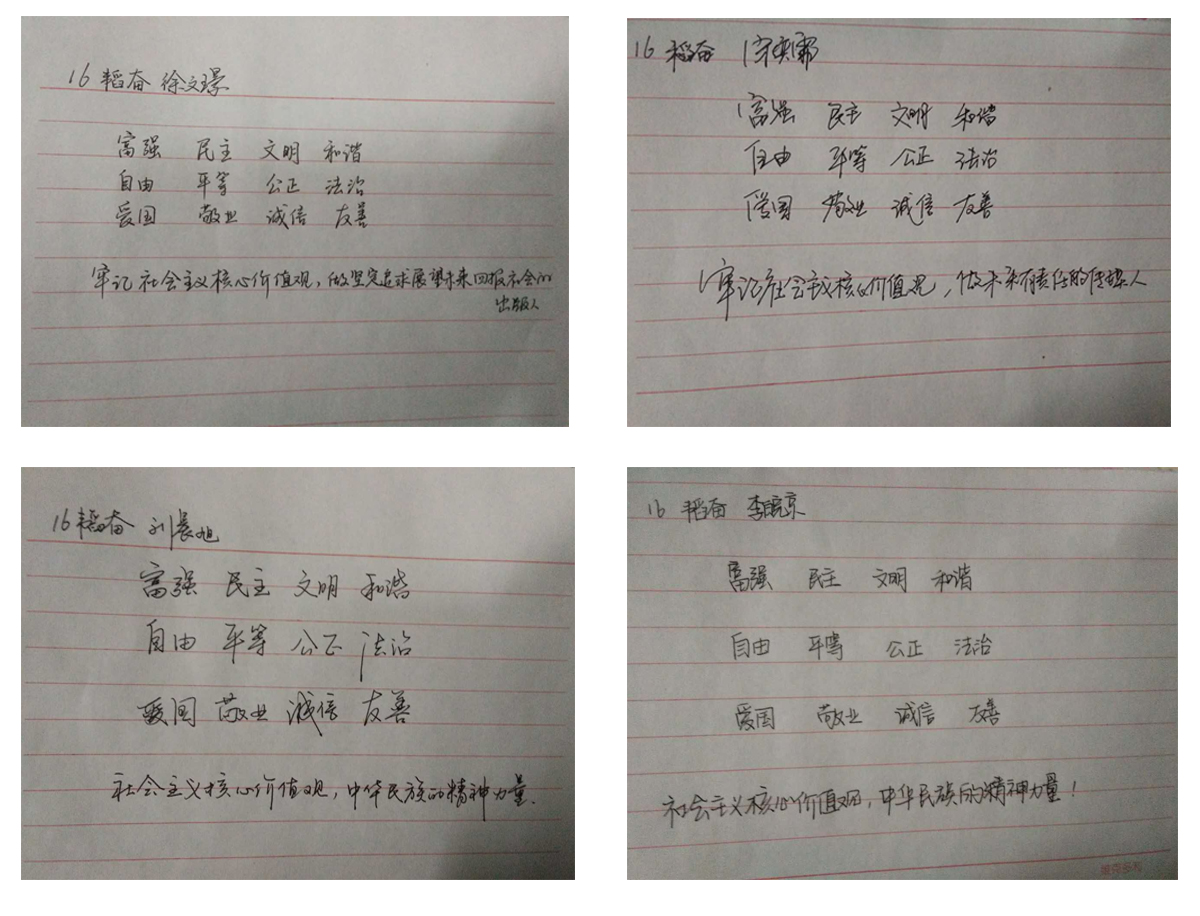 16 韬奋 徐文璟
富强 民主 文明 和谐
自由 平等 公正 法治
爱国 敬业 诚信 友善
牢记社会主义核心价值观，做坚定追求展望未来回报社会的
出版人
16 韬奋
富强 民主 文明 和谐
自由 平等 公正 法治
爱国 敬业 诚信 友善
牢记社会主义核心价值观，做未来有责任的传媒人
16 韬奋 刘晨旭
富强 民主 文明 和谐
自由 平等 公正 法治
爱国 敬业 诚信 友善
社会主义核心价值观，中华民族的精神力量.
16 韬奋 李皖京
富强 民主 文明 和谐
自由 平等 公正 法治
爱国 敬业 诚信 友善
社会主义核心价值观，中华民族的精神力量！